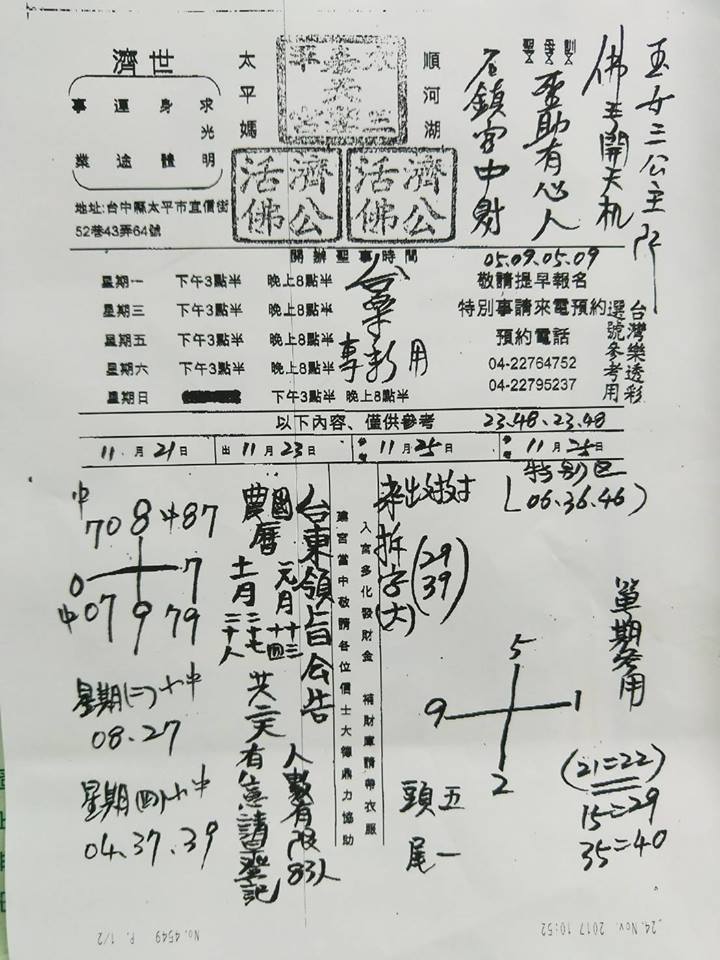 玉女三公主降
佛手開天机
聖母
聖助有心人
石鎮宮中財
順河湖
太平媽
濟公活佛
濟公活佛
濟世
求光明
身體
運途
事業
地址:台中縣太平市宜信街
52巷43弄64號
開辦聖事時間
星期一 下午3點半 晚上8點半
星期三 下午3點半 晚上8點半
星期五 下午3點半 晚上8點半
星期六 下午3點半 晚上8點半
星期日 下午3點半 晚上8點半
參考用
05.09.05.09
敬請提早報名
特別事請來電預約
預約電話
04-22764752
04-22795237
台灣樂透彩
選號參考用
以下內容、僅供參考 23.48.23.48
11月21日 出 11月23日 參考 11月25日 參考 11月25日
中
70 8 中87
0 7
中07 9 79
星期(二)十中
08.27
星期四十中
04.37.39
台東領旨公告
國曆元月十三十四
農曆十一月二十七
共二天
人數有限83人
有意請登記
建宮當中敬請各位信士大德鼎力協助
入宮多化發財金 補財庫請帶衣服
來出對
拆字(大)
(29
39)
特別区
(06.36.46)
單期參用
5
9 1
2
頭五
尾一
(21=22)
15=29
35=40
No.4549 P. 1/2
24.Nov. 2017 10:52